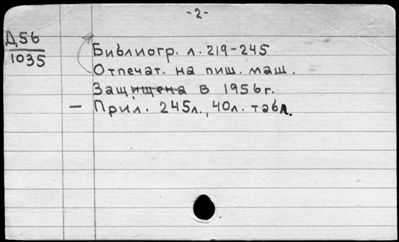 -2-
Д56
1035
Библиогр. л. 219-245
Отпечат. на пиш. маш.
Защищена в 1956г.
- Прил. 245л., 40л. табл.